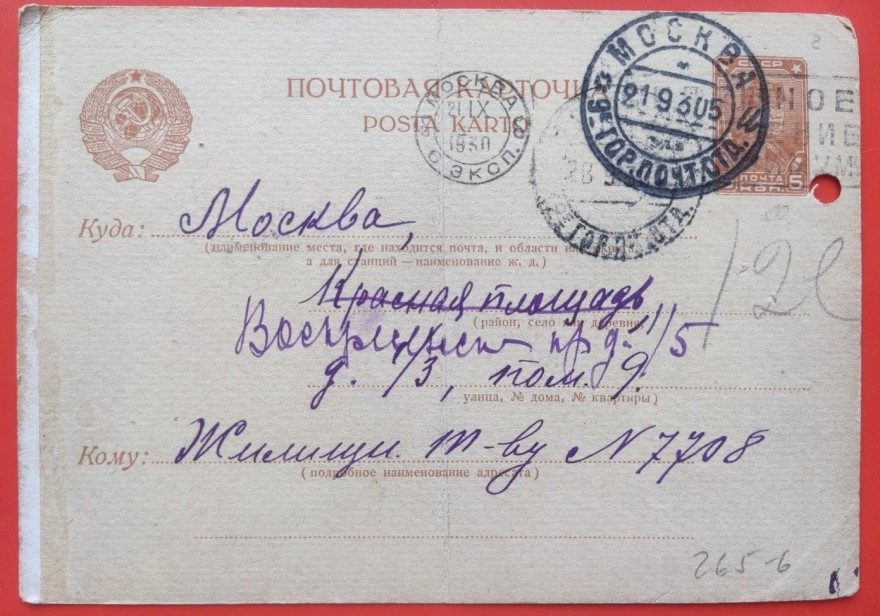 ПОЧТОВАЯ КАРТОЧКА
POSTA KARTO
СССР
ПОЧТА
5 КОП.
МОСКВА
21 IX
1930
6 ЭКСП.
МОСКВА
21 9 30
ГОР.ПОЧТ.ОТД.
ГОР.ПОЧТ.ОТД.
Куда: Москва,
(наименование места, где находится почта, и области или края,
а для станций — наименование ж. д.)
Красная площадь
(район, село или деревня)
пр д. 1/5
д. 1/3, пом. 9.
улица, № дома, № квартиры)
Кому: Жилищн. т-ву N 7708
(подробное наименование адресата)
265-6